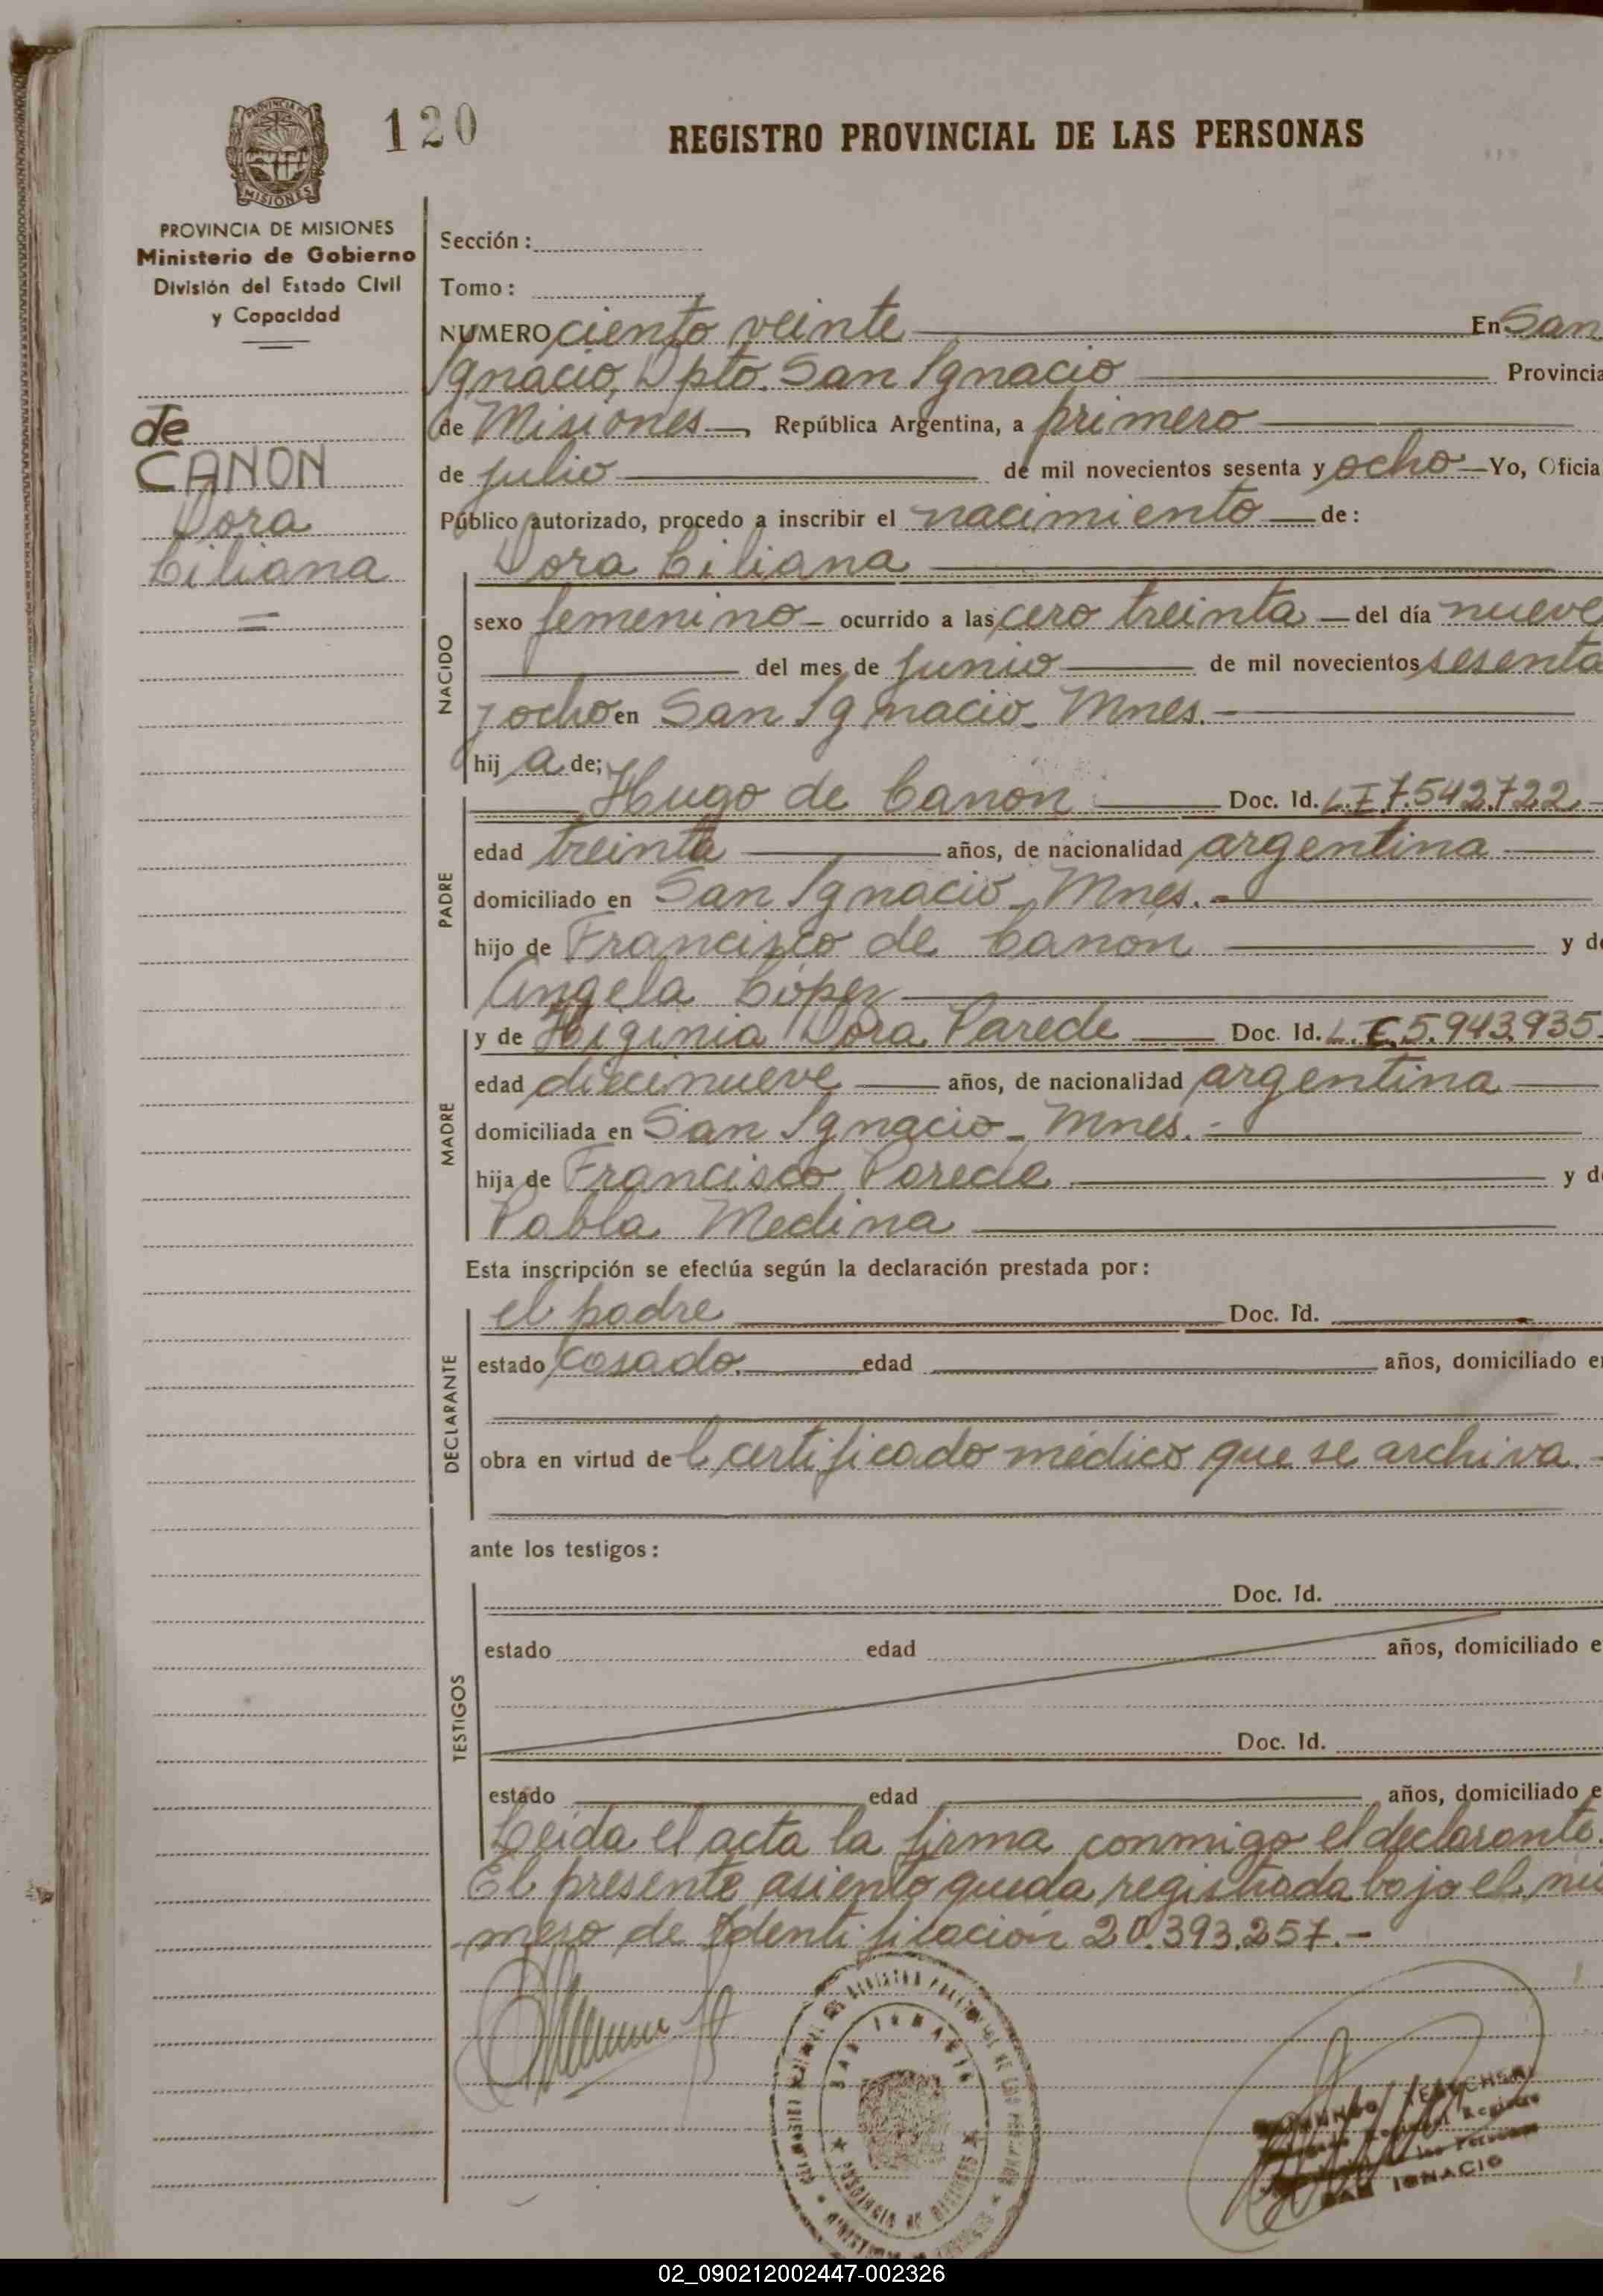 PROVINCIA DE
MISIONES
120
REGISTRO PROVINCIAL DE LAS PERSONAS
PROVINCIA DE MISIONES
Ministerio de Gobierno
División del Estado Civil
y Capacidad
de
CANON
Dora
Liliana
Sección:
Tomo:
NUMERO ciento veinte En San
Ignacio, Dpto. San Ignacio Provincia
de Misiones, República Argentina, a primero
de julio de mil novecientos sesenta y ocho Yo, Oficia
Público autorizado, procedo a inscribir el nacimiento de:
Dora Liliana
NACIDO
sexo femenino ocurrido a las cero treinta del día nueve
del mes de junio de mil novecientos sesenta
y ocho en San Ignacio - Mnes.
hij a de;
PADRE
Hugo de Canon Doc. Id. L.E 7.542.722
edad treinta años, de nacionalidad argentina
domiciliado en San Ignacio - Mnes.
hijo de Francisco de Canon y de
Angela López
MADRE
y de Higinia Dora Parede Doc. Id. L.C 5.943.935
edad diecinueve años, de nacionalidad argentina
domiciliada en San Ignacio - Mnes.
hija de Francisco Parede y de
Pabla Medina
Esta inscripción se efectúa según la declaración prestada por:
DECLARANTE
el padre Doc. Id.
estado casado edad años, domiciliado en
obra en virtud de l certificado médico que se archiva.
ante los testigos:
TESTIGOS
Doc. Id.
estado edad años, domiciliado e
Doc. Id.
estado edad años, domiciliado e
Leída el acta la firma conmigo el declarante.
El presente asiento queda registrada bajo el nú
mero de Identificación 20.393.257.-
SAN IGNACIO
SAN IGNACIO
02_090212002447-002326